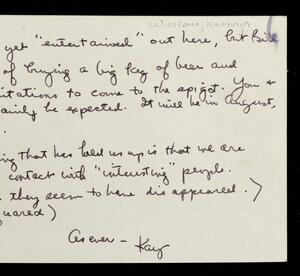 Winslow, Kathryn
yet "entertained" out here, but Bill
of buying a big keg of beer and
itations to come to the spigot. You &
ainly be expected. It will be in August,
ing that has held us up is that we are
contact with "interesting" people.
they seem to have disappeared.)
uared)
As ever – Kay